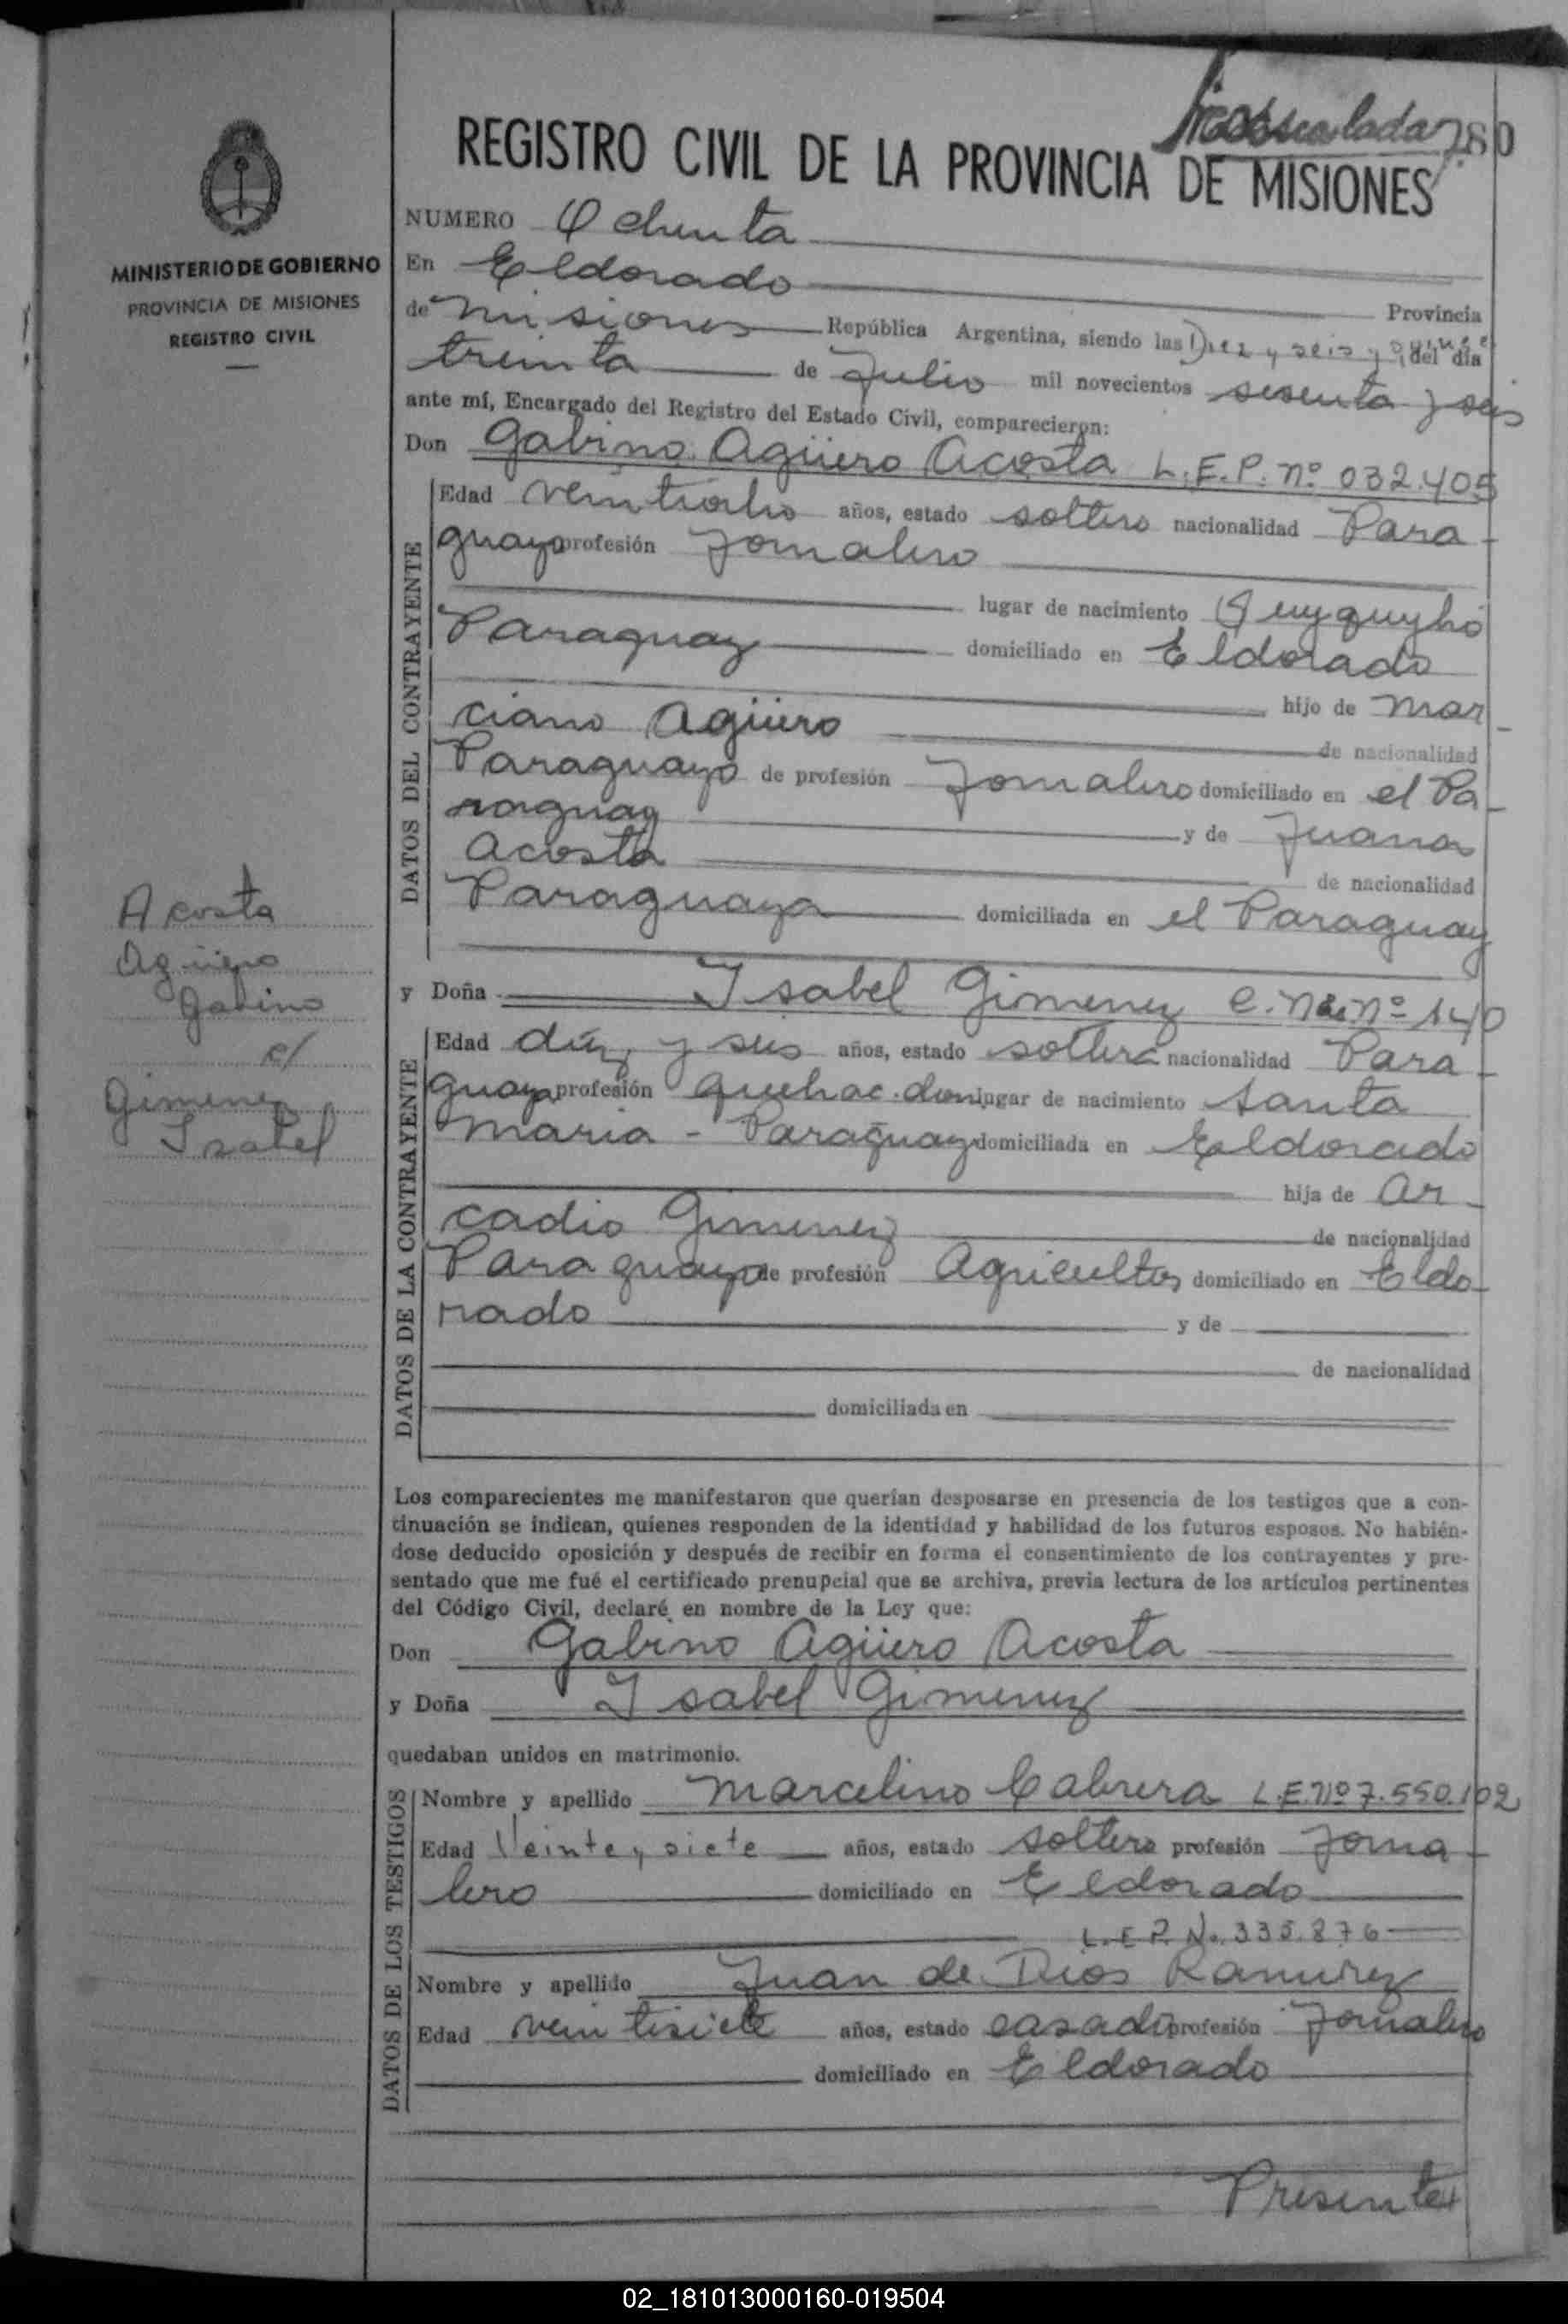 280
REGISTRO CIVIL DE LA PROVINCIA DE MISIONES
MINISTERIO DE GOBIERNO
PROVINCIA DE MISIONES
REGISTRO CIVIL
NUMERO Ochenta
En Eldorado Provincia
de Misiones República Argentina, siendo las Diez y seis y quince del día
treinta de Julio mil novecientos sesenta y seis
ante mí, Encargado del Registro del Estado Civil, comparecieron:
Don Gabino Agüero Acosta L.E.P. nº 032.405
DATOS DEL CONTRAYENTE
Edad veintiocho años, estado soltero nacionalidad Para-
guayo profesión Jornalero
lugar de nacimiento Quyquyhó
Paraguay domiciliado en Eldorado
hijo de Mar-
ciano Agüero de nacionalidad
Paraguayo de profesión Jornalero domiciliado en el Pa-
raguay y de Juana
Acosta de nacionalidad
Paraguaya domiciliada en el Paraguay
Acosta
Agüero
Gabino
c/
Gimenez
Isabel
y Doña Isabel Gimenez C. nº 140
DATOS DE LA CONTRAYENTE
Edad diez y seis años, estado soltera nacionalidad Para-
guaya profesión quehac. dom. lugar de nacimiento Santa
Maria - Paraguay domiciliada en Eldorado
hija de Ar-
cadio Gimenez de nacionalidad
Paraguayo de profesión Agricultor domiciliado en Eldo-
rado y de
de nacionalidad
domiciliada en
Los comparecientes me manifestaron que querían desposarse en presencia de los testigos que a con-
tinuación se indican, quienes responden de la identidad y habilidad de los futuros esposos. No habién-
dose deducido oposición y después de recibir en forma el consentimiento de los contrayentes y pre-
sentado que me fué el certificado prenupcial que se archiva, previa lectura de los artículos pertinentes
del Código Civil, declaré en nombre de la Ley que:
Don Gabino Agüero Acosta
y Doña Isabel Gimenez
quedaban unidos en matrimonio.
DATOS DE LOS TESTIGOS
Nombre y apellido Marcelino Cabrera L.E. nº 7.550.102
Edad Veinte y siete años, estado soltero profesión Jorna-
lero domiciliado en Eldorado
L.E.P. No. 335.876
Nombre y apellido Juan de Dios Ramirez
Edad veintisiete años, estado casado profesión Jornalero
domiciliado en Eldorado
Presentes
02_181013000160-019504